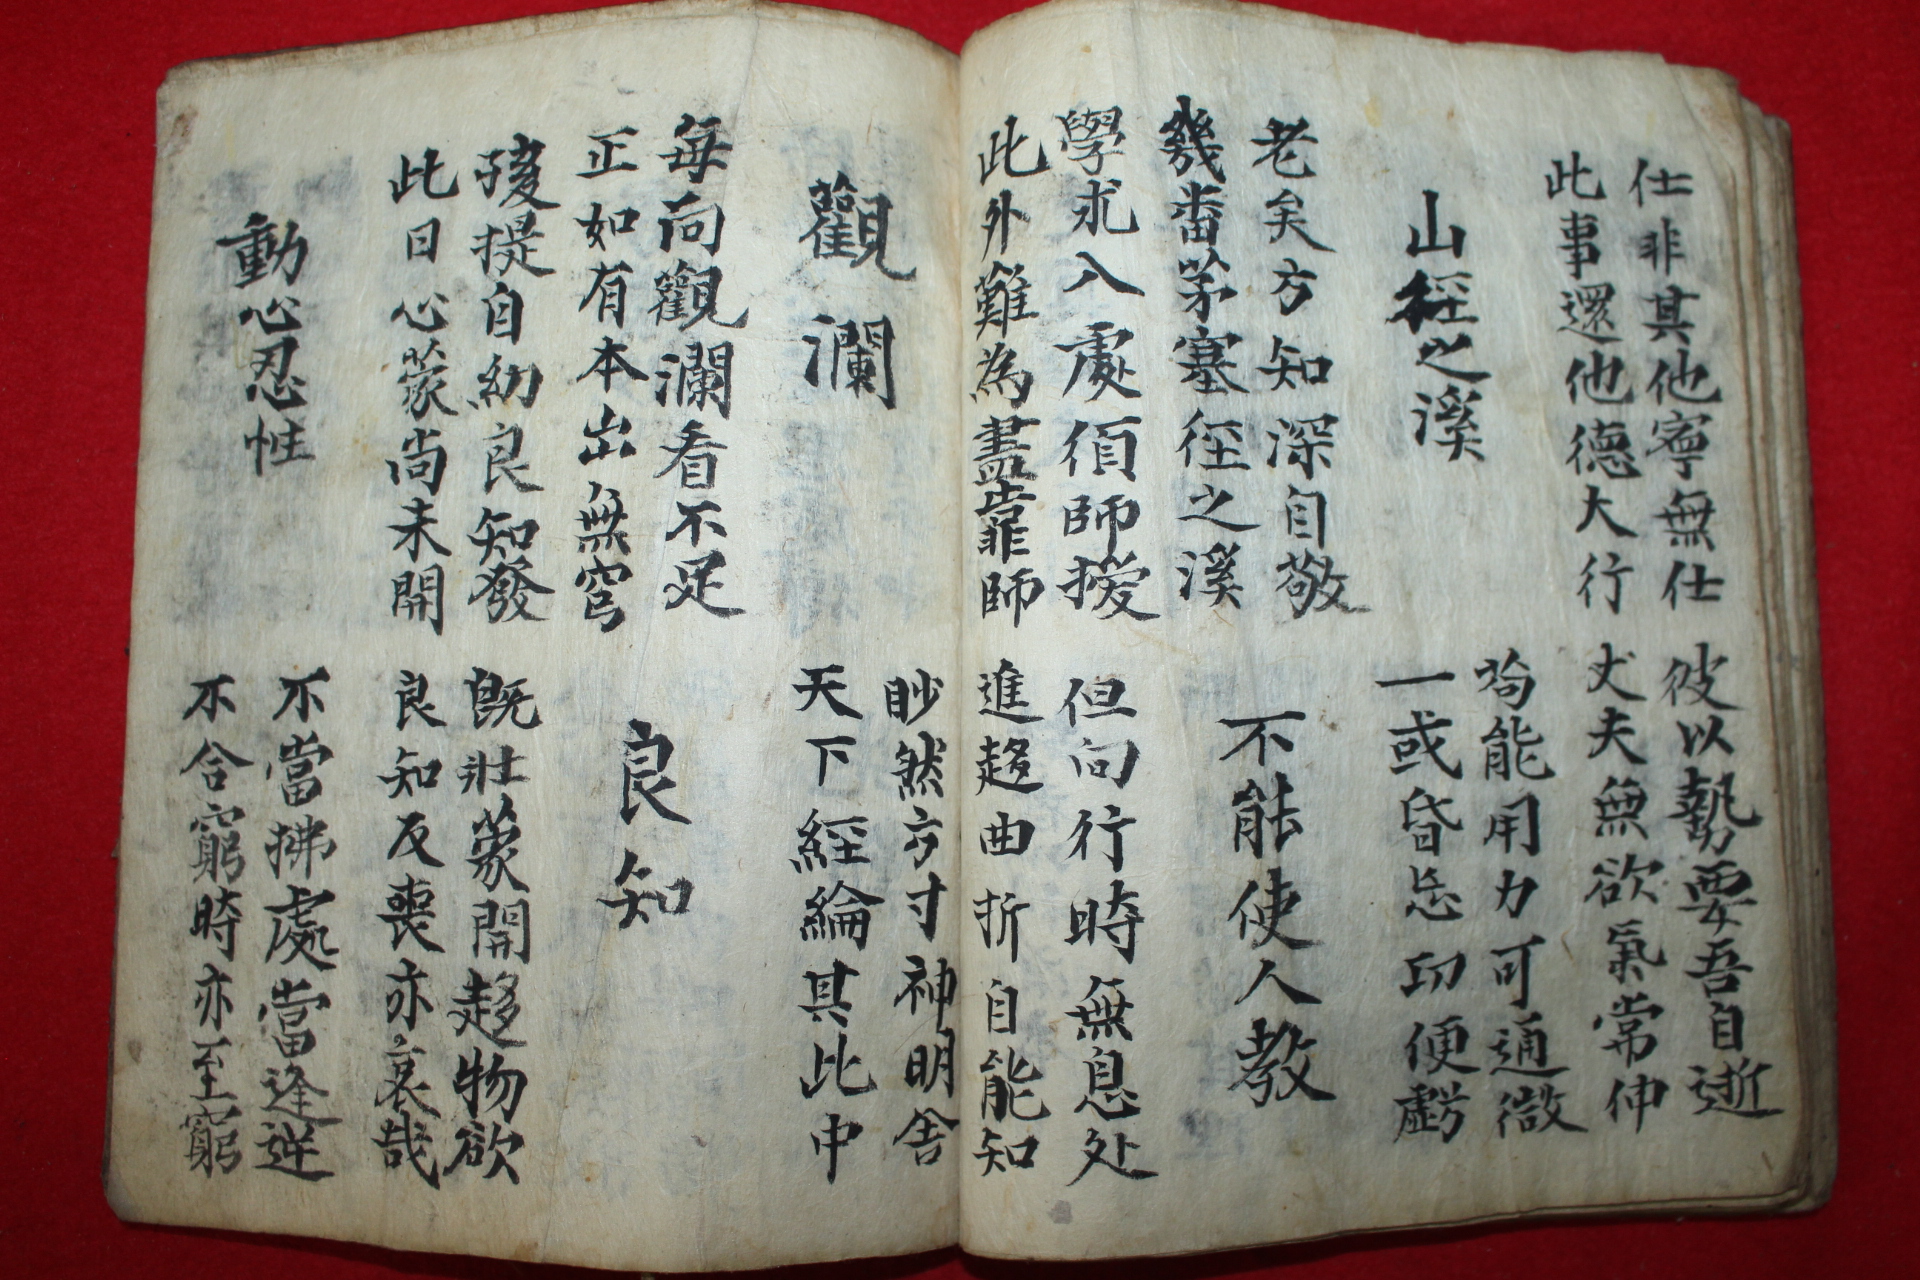 仕非其他寧無仕　彼以勢要吾自逝
此事還他德大行　丈夫無欲氣常伸
能用力可通微
山徑之溪　一或昏忘功便虧
老矣方知深自敬
不能使人教
幾番茅塞徑之溪
學求入處須師授　但向行時無息处
此外難為盡靠師　進趍曲折自能知
眇然方寸神明舍
觀瀾　天下經綸其此中
每向觀瀾看不足
良知
正如有本出無穹
孩提自幼良知發　旣壯蒙開趍物欲
此日心蒙尚未開　良知反喪亦哀哉
動心忍性　不當拂處當逢逆
不合窮時亦至窮